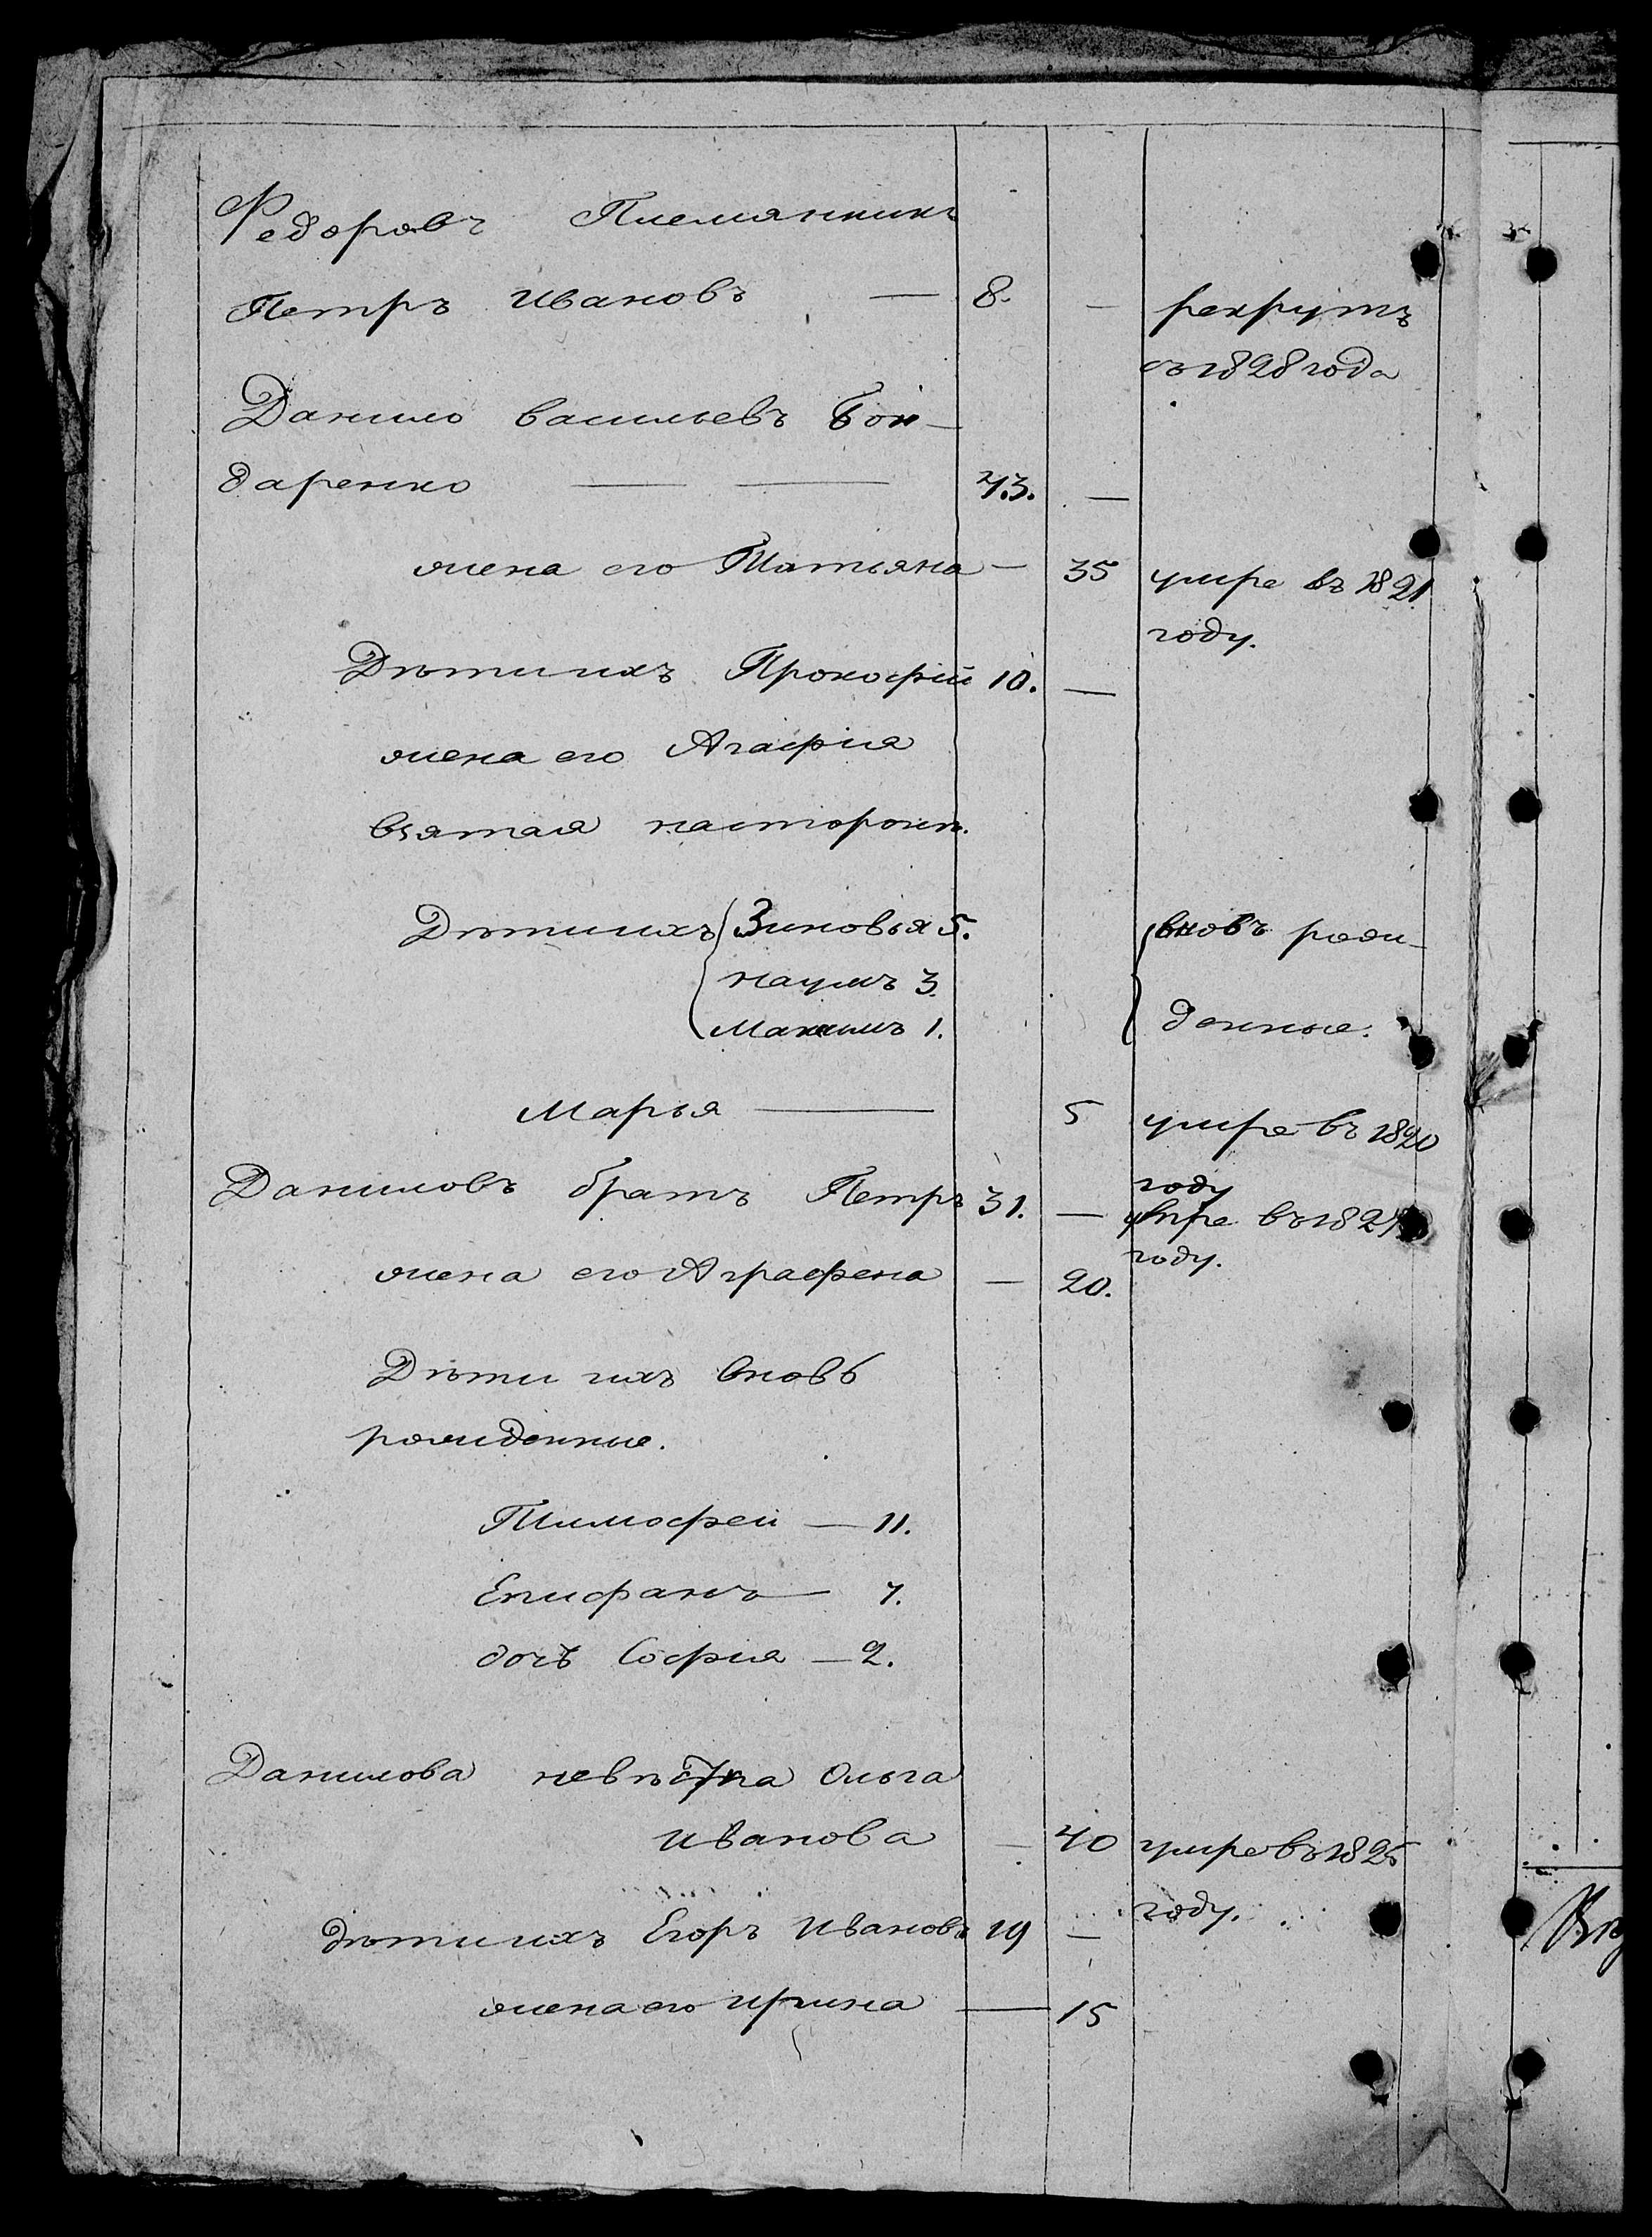 Федоровъ Племянникъ
Петръ Ивановъ — 8. — рекрутъ
съ 1828 года
Данило Васильевъ Бон-
даренко — — 43. —
жена его Татьяна — 35 умре въ 1821
году.
Дѣти ихъ Прокофій 10. —
жена его Агафия
взятая насторонѣ.
Дѣти ихъ Зиновья 5. вновь рож-
Наумъ 3.
Максимъ 1. денные.
Марья — 5 умре въ 1820
году
Даниловъ братъ Петръ 31. — умре въ 182
году.
жена его Аграфена — 20.
Дѣти ихъ вновь
рожденные.
Тимофей — 11.
Епифанъ — 7.
дочь София — 2.
Данилова невѣстка Ольга
Иванова — 40 умре въ 1825
году.
дѣти ихъ Егоръ Ивановъ 19 —
жена его Ирина — 15